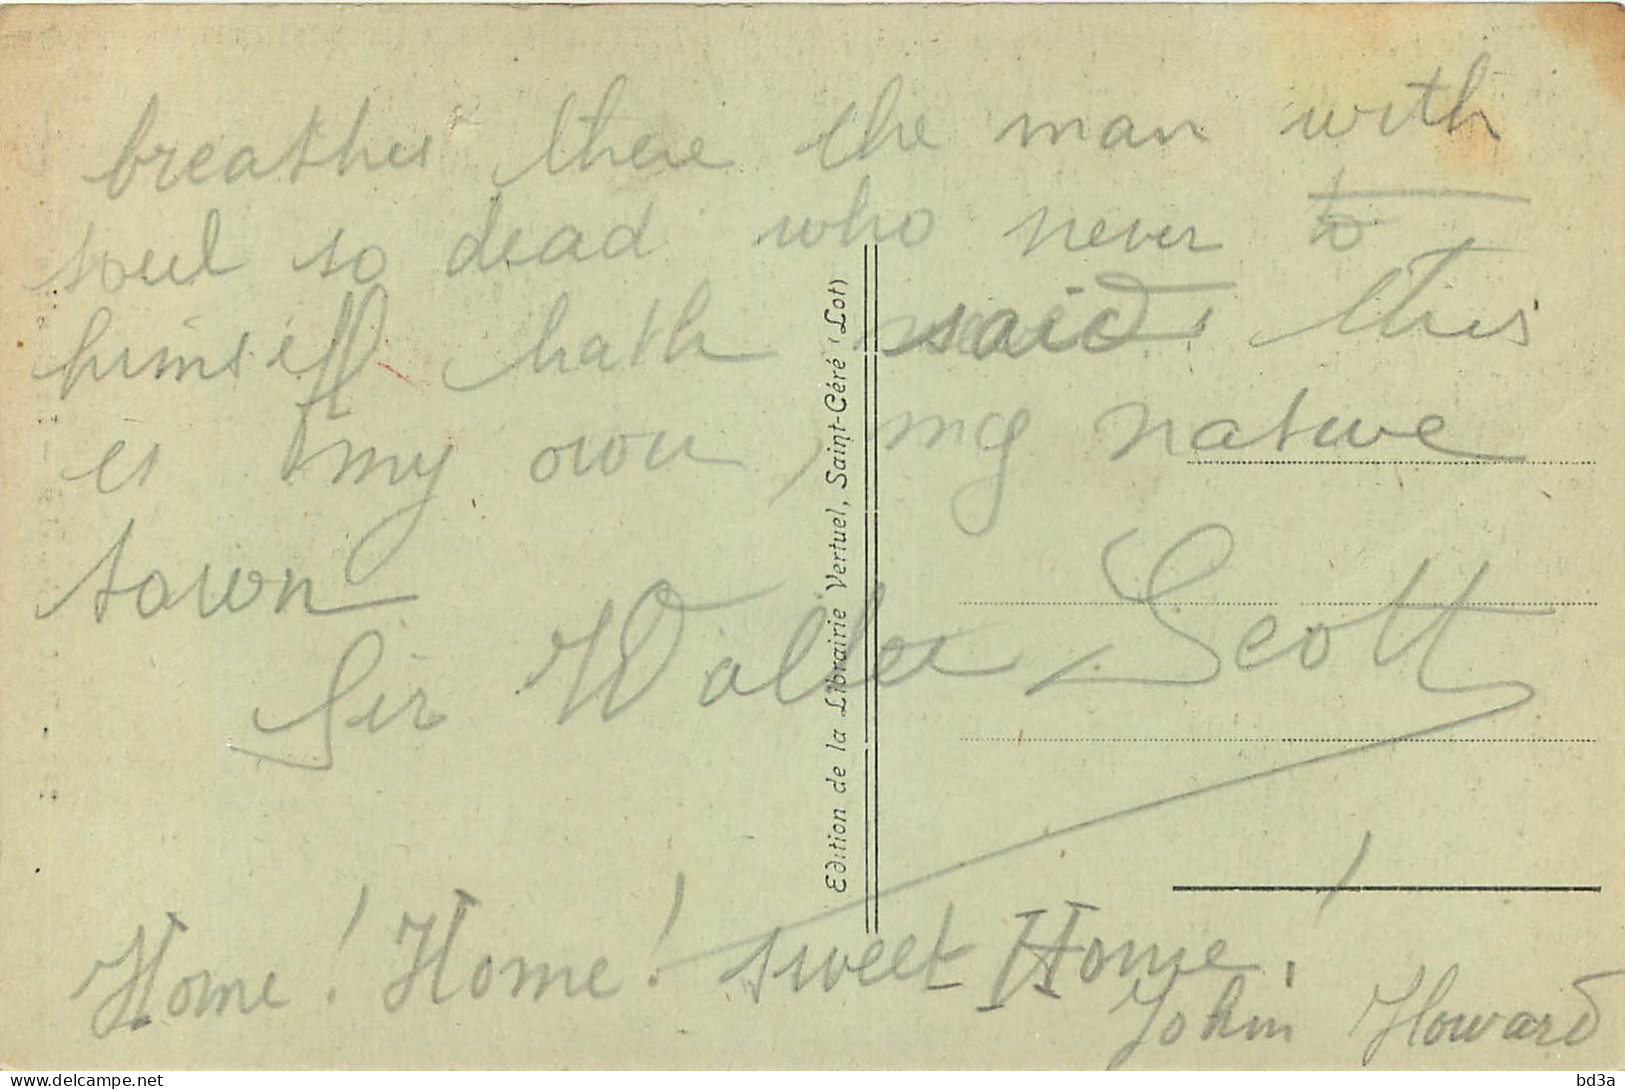 breathes there the man with
soul so dead who never to
himself hath said this
is my own, my native
town
Sir Walter Scott
Home! Home! sweet Home!
John Howard
Edition de la Librairie Vertuel, Saint-Céré (Lot)
delcampe.net
bd3a